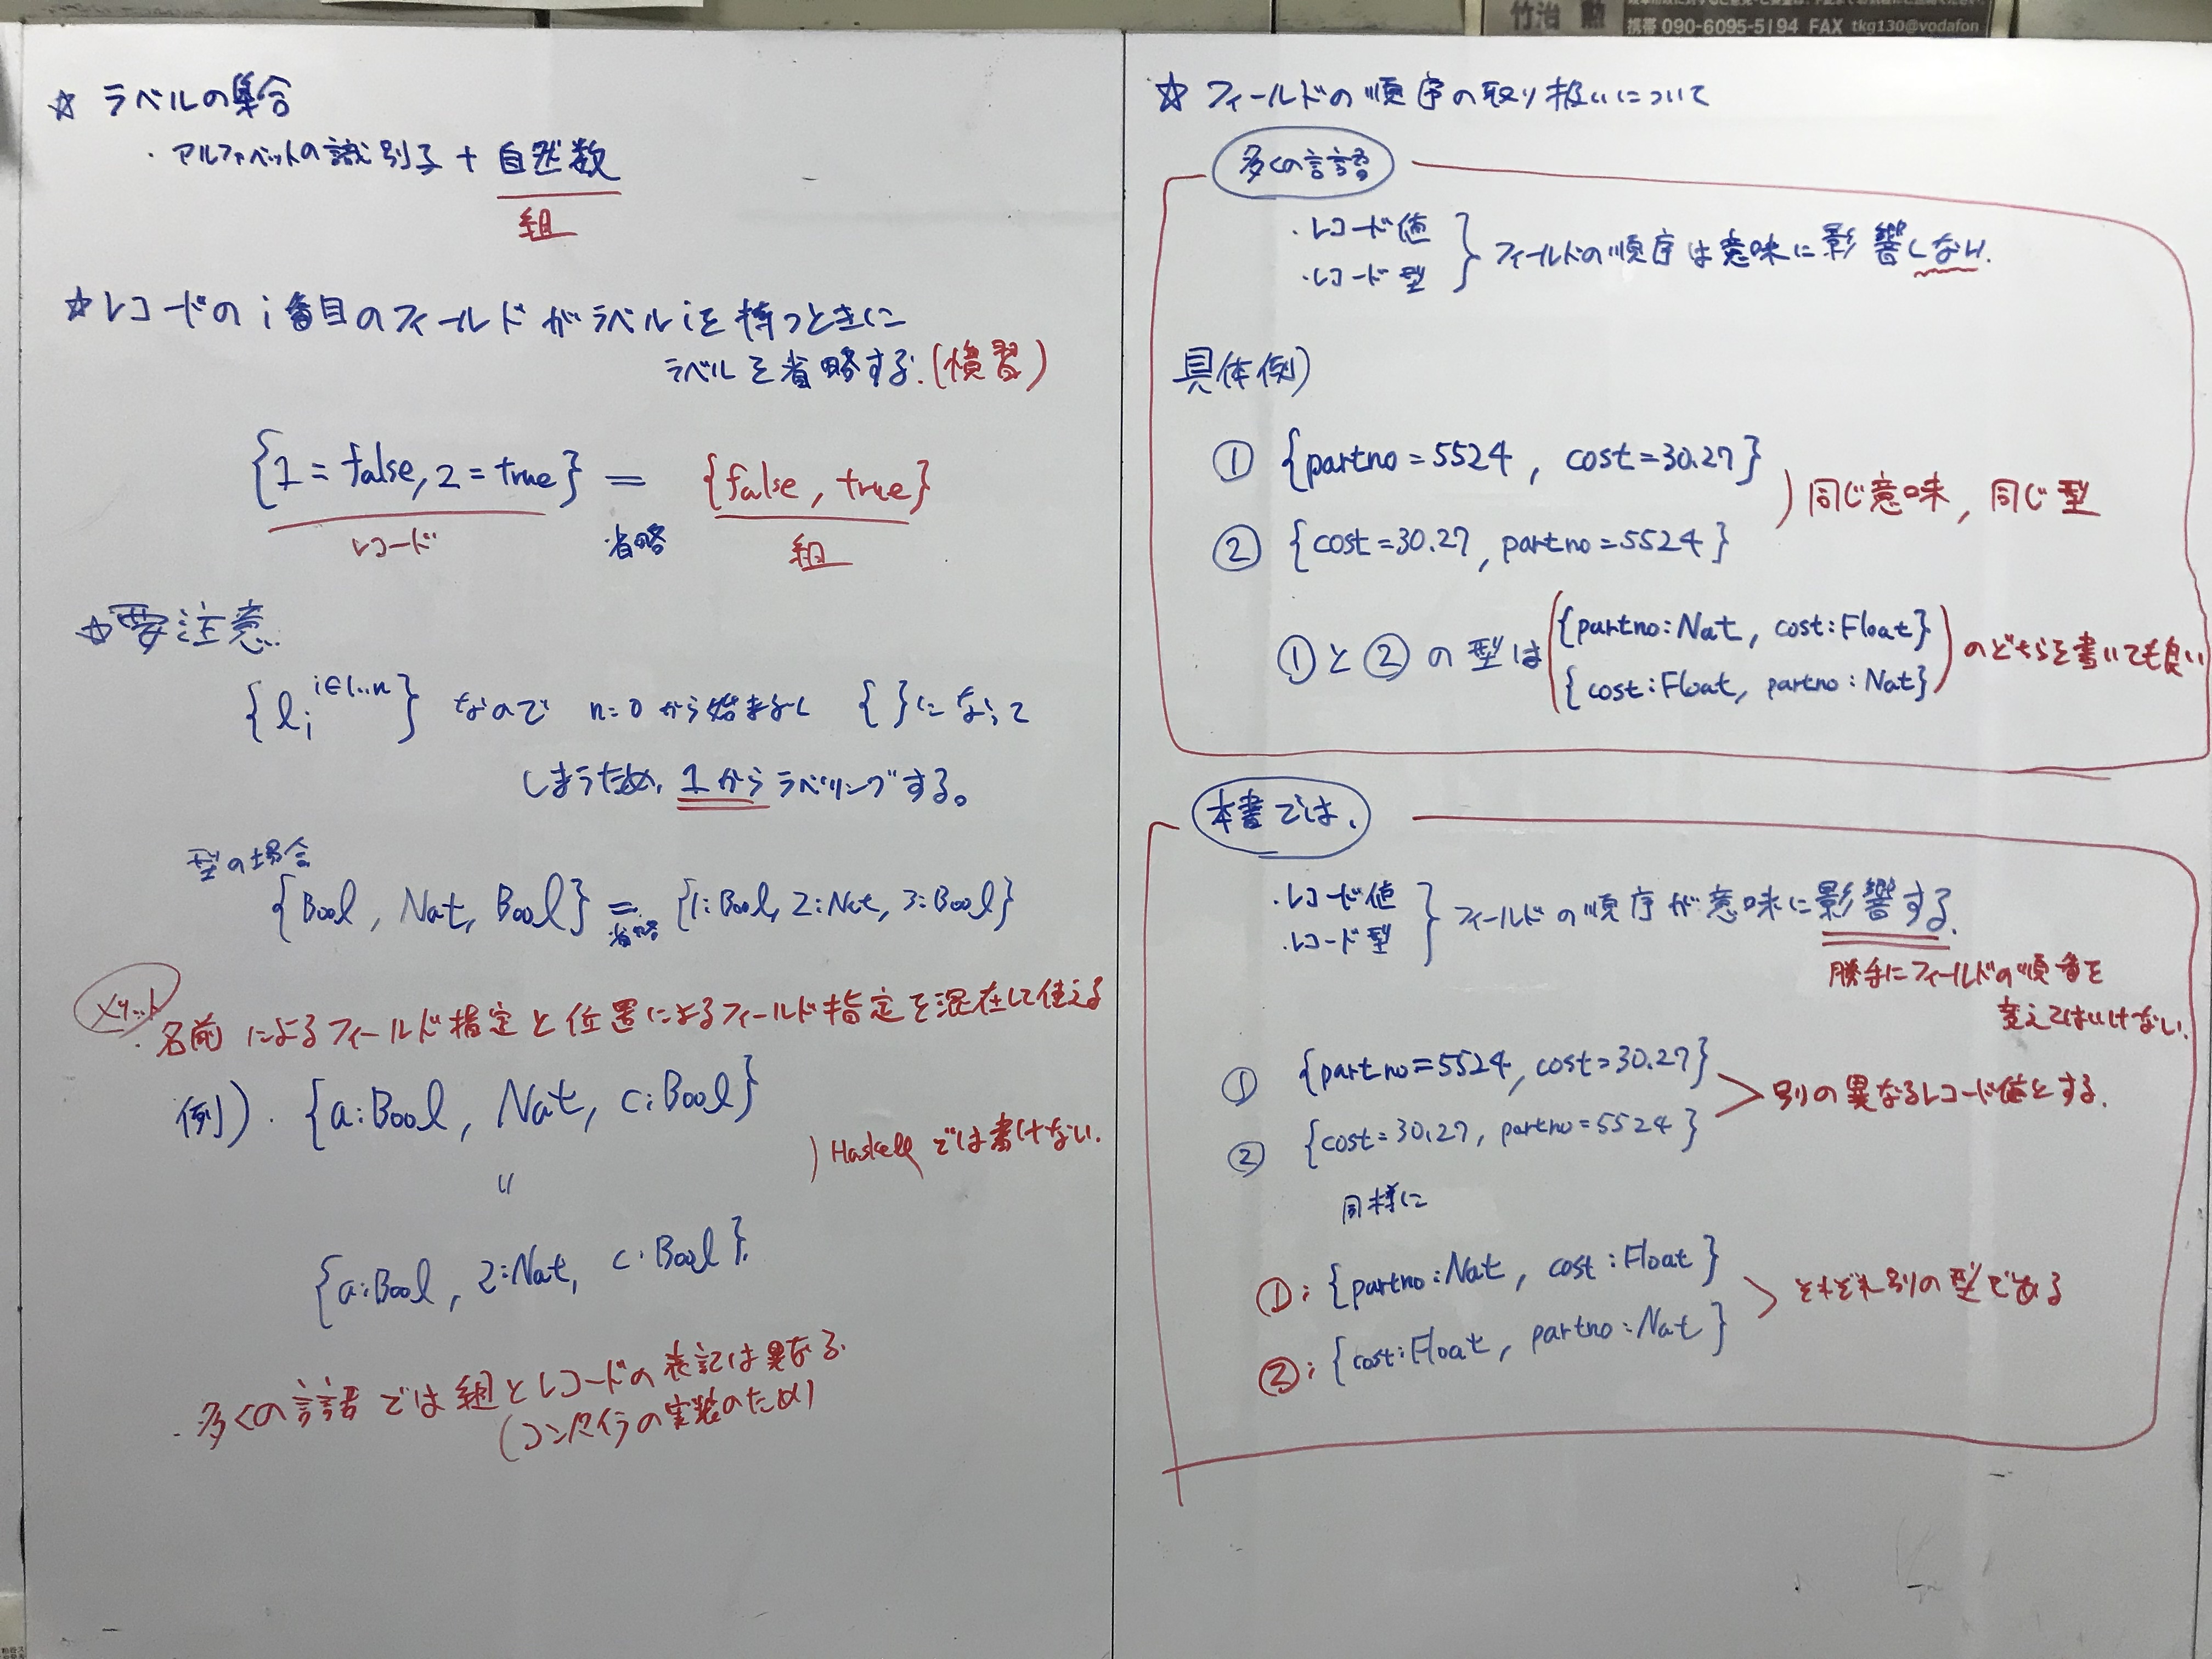 ☆ ラベルの集合
・アルファベットの識別子 + 自然数
組
☆レコードの i 番目のフィールドがラベル i を持つときに
ラベルを省略する.(慣習)
{1=false, 2=true} = {false, true}
レコード 省略 組
☆要注意.
{l_i^{i∈1..n}} なので n=0 から始まると { }になって
しまうため、1から ラベリングする。
型の場合
{Bool, Nat, Bool} = {1:Bool, 2:Nat, 3:Bool}
省略
メリット
・名前によるフィールド指定と位置によるフィールド指定を混在して使える
例). {a:Bool, Nat, c:Bool}
) Haskell では書けない.
=
{a:Bool, 2:Nat, c:Bool}.
・多くの言語では組とレコードの表記は異なる.
(コンパイラの実装のため)
☆ フィールドの順序の取り扱いについて
多くの言語
・レコード値
・レコード型
} フィールドの順序は意味に影響しない.
具体例)
① {partno=5524, cost=30.27}
② {cost=30.27, partno=5524}
) 同じ意味, 同じ型
①と②の型は
{partno:Nat, cost:Float}
{cost:Float, partno:Nat}
のどちらを書いても良い
本書では、
・レコード値
・レコード型
} フィールドの順序が意味に影響する.
勝手にフィールドの順番を
変えてはいけない.
① {partno=5524, cost=30.27}
② {cost=30.27, partno=5524}
> 別の異なるレコード値とする.
同様に
①: {partno:Nat, cost:Float}
②: {cost:Float, partno:Nat}
> それぞれ別の型である
竹治 勲
携帯 090-6095-5194 FAX tkg130@vodafon